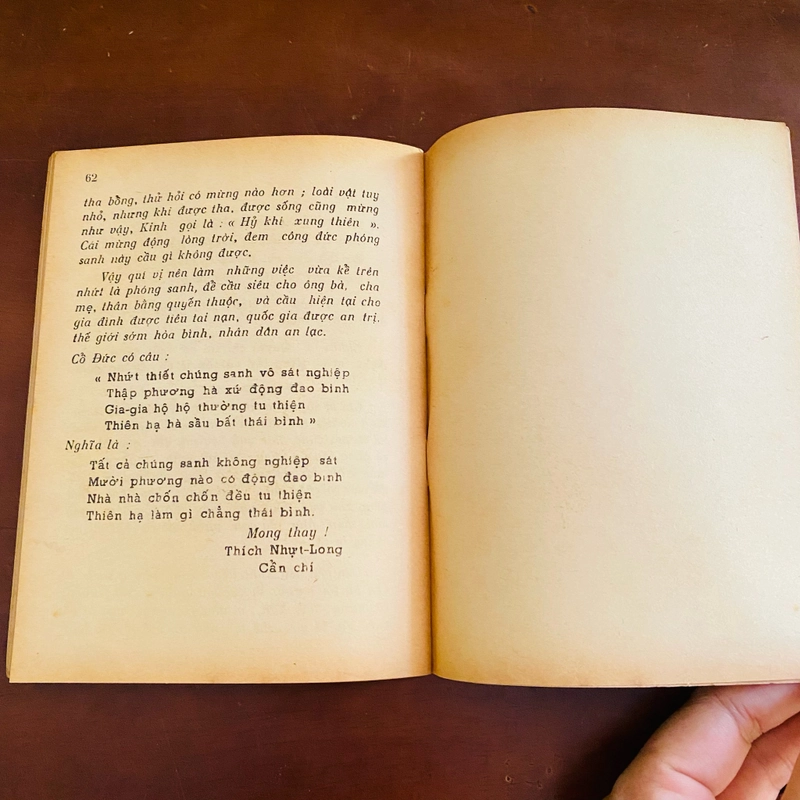 62
tha bồng, thử hỏi có mừng nào hơn ; loài vật tuy
nhỏ, nhưng khi được tha, được sống cũng mừng
như vậy, Kinh gọi là : « Hỷ khí xung thiên ».
Cái mừng động lòng trời, đem công đức phóng
sanh này cầu gì không được.
Vậy quí vị nên làm những việc vừa kề trên
nhứt là phóng sanh, đề cầu siêu cho ông bà, cha
mẹ, thân bằng quyến thuộc, và cầu hiện tại cho
gia đình được tiêu tai nạn, quốc gia được an trị,
thế giới sớm hòa bình, nhân dân an lạc.
Cồ Đức có câu :
« Nhứt thiết chúng sanh vô sát nghiệp
Thập phương hà xứ động đao binh
Gia-gia hộ hộ thường tu thiện
Thiên hạ hà sầu bất thái bình »
Nghĩa là :
Tất cả chúng sanh không nghiệp sát
Mười phương nào có động đao binh
Nhà nhà chốn chốn đều tu thiện
Thiên hạ làm gì chẳng thái bình.
Mong thay !
Thích Nhựt-Long
Cần chí